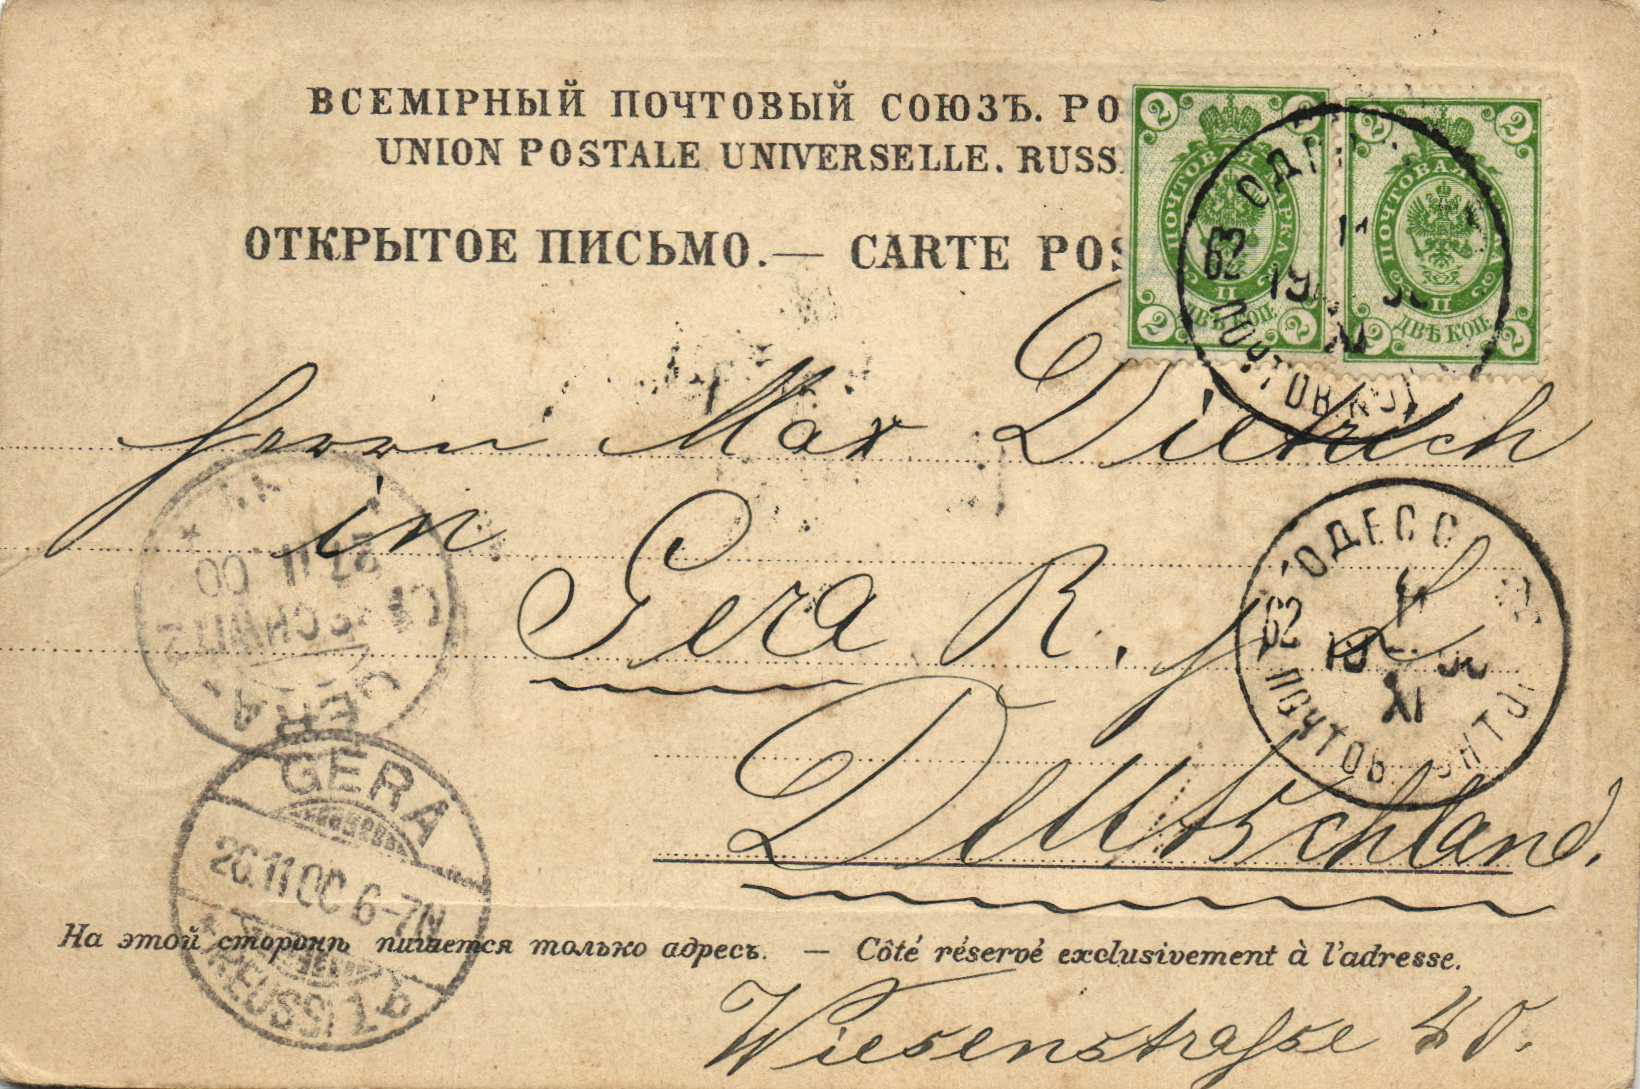 ВСЕМІРНЫЙ ПОЧТОВЫЙ СОЮЗЪ. РО
UNION POSTALE UNIVERSELLE. RUSS
ОТКРЫТОЕ ПИСЬМО.— CARTE POS
2 2
ПОЧТОВАЯ МАРКА
II
2 ДВѢ КОП. 2
2 2
ПОЧТОВАЯ МАРКА
II
2 ДВѢ КОП. 2
Herrn Max Dietrich
in
Gera R. j. L.
Deutschland.
ОДЕСС
XI
GERA
27 11 00
GERA
26.11 00 6-7N
* REUSS j. L. b
На этой сторонѣ пишется только адресъ. — Côté réservé exclusivement à l'adresse.
Wiesenstraſse